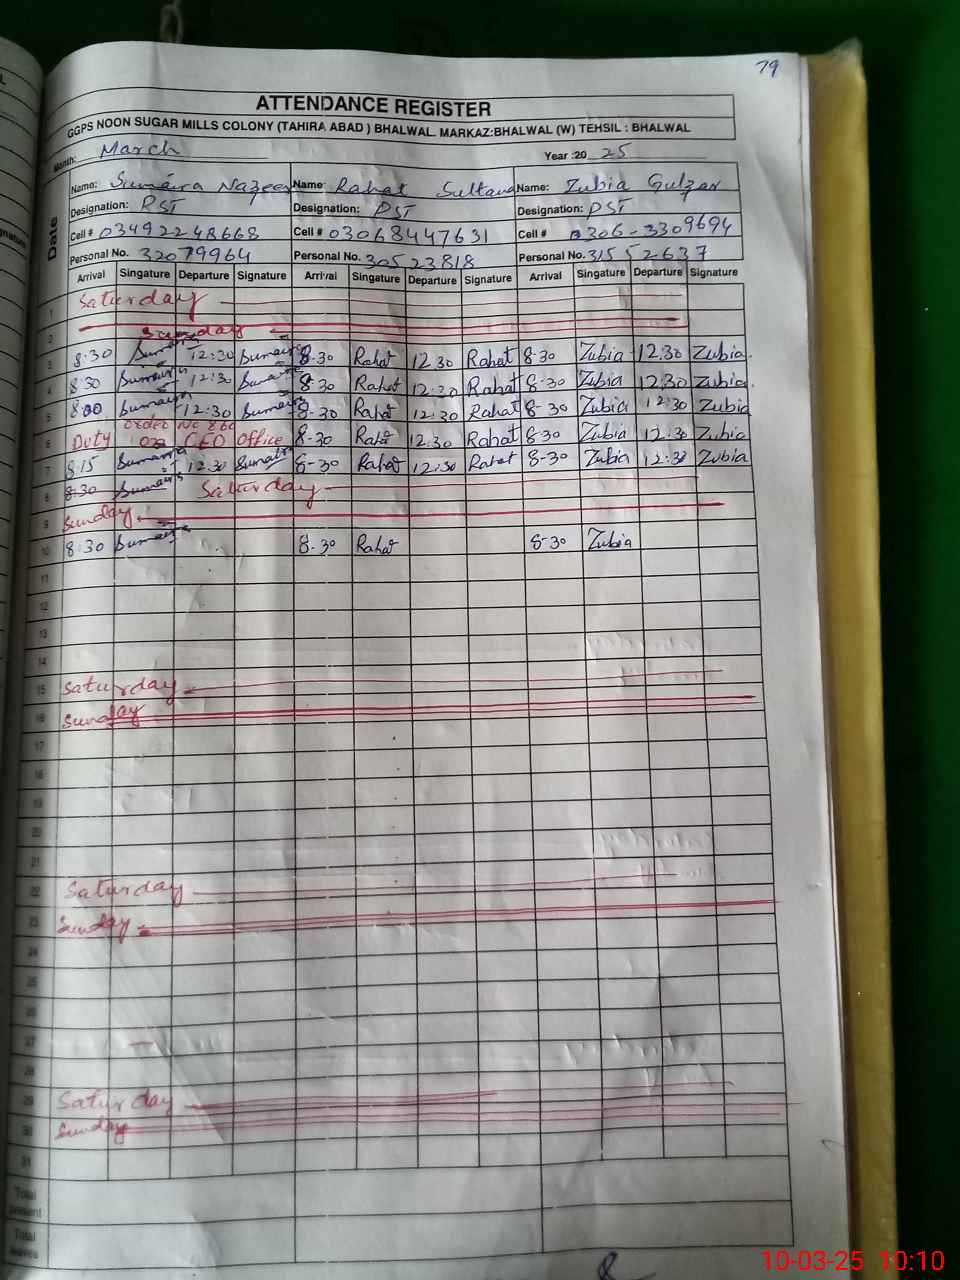 79
ATTENDANCE REGISTER
GGPS NOON SUGAR MILLS COLONY (TAHIRA ABAD ) BHALWAL. MARKAZ:BHALWAL (W) TEHSIL : BHALWAL
Month: March Year :20 25
Name: Sumaira Nazeer Name: Rahat Sultana Name: Zubia Gulzar
Designation: PST Designation: PST Designation: PST
Cell # 03492248668 Cell # 03068447631 Cell # 0306-3309694
Personal No. 32079964 Personal No. 30523818 Personal No. 31552637
Date Arrival Singature Departure Signature Arrival Singature Departure Signature Arrival Singature Departure Signature
1 Saturday
2 Sunday
3 8:30 Sumaira 12:30 Sumaira 8-30 Rahat 12.30 Rahat 8-30 Zubia 12.30 Zubia
4 8:30 Sumaira 12:30 Sumaira 8-30 Rahat 12.30 Rahat 8-30 Zubia 12.30 Zubia
5 8:00 Sumaira 12:30 Sumaira 8-30 Rahat 12.30 Rahat 8-30 Zubia 12.30 Zubia
6 Duty order No CEO Office 8-30 Rahat 12.30 Rahat 8-30 Zubia 12.30 Zubia
7 8:15 Sumaira 12:30 Sumaira 8-30 Rahat 12.30 Rahat 8-30 Zubia 12:30 Zubia
8 8:30 Sumaira Saturday
9 Sunday
10 8:30 Sumaira 8-30 Rahat 8-30 Zubia
11
12
13
14
15 Saturday
16 Sunday
17
18
19
20
21
22 Saturday
23 Sunday
24
25
26
27
28
29 Saturday
30 Sunday
31
Total present
Total leaves
10-03-25 10:10